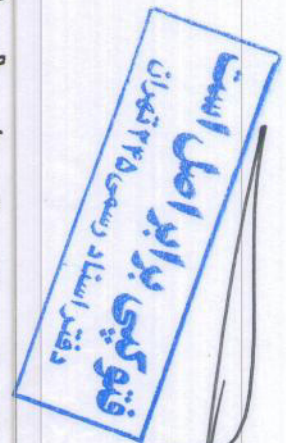 فتوکپی برابر اصل است
دفتر اسناد رسمی ۲۲۵ تهران